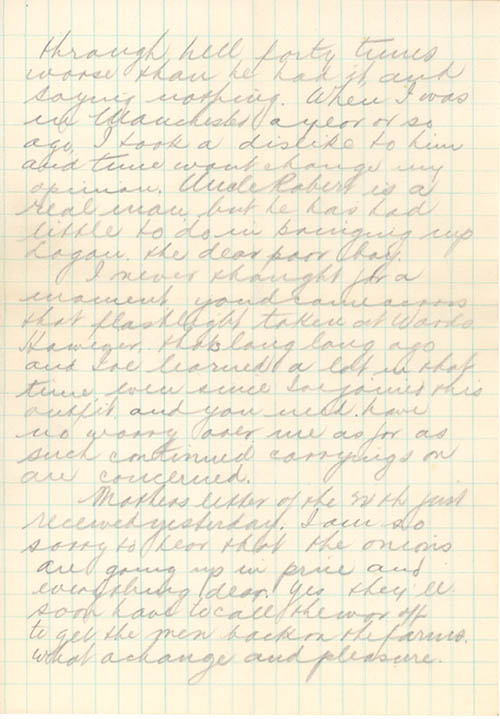 through hell forty times
worse than he had it and
saying nothing. When I was
in Manchester a year or so
ago, I took a dislike to him
and time wont change my
opinion. Uncle Robert is a
real man but he has had
little to do in bringing up
Logan. the dear poor boy.
I never thought for a
moment youd come across
that flashlight taken at Wards.
However, thats long long ago
and Ive learned a lot in that
time even since Ive joined this
outfit, and you need have
no worry over me as far as
such continued carryings on
are concerned.
Mothers letter of the th just
received yesterday. I am so
sorry to hear that the onions
are going up in price and
everything dear. Yes they'll
soon have to call the war off
to get the men back on the farms.
What a change and pleasure.